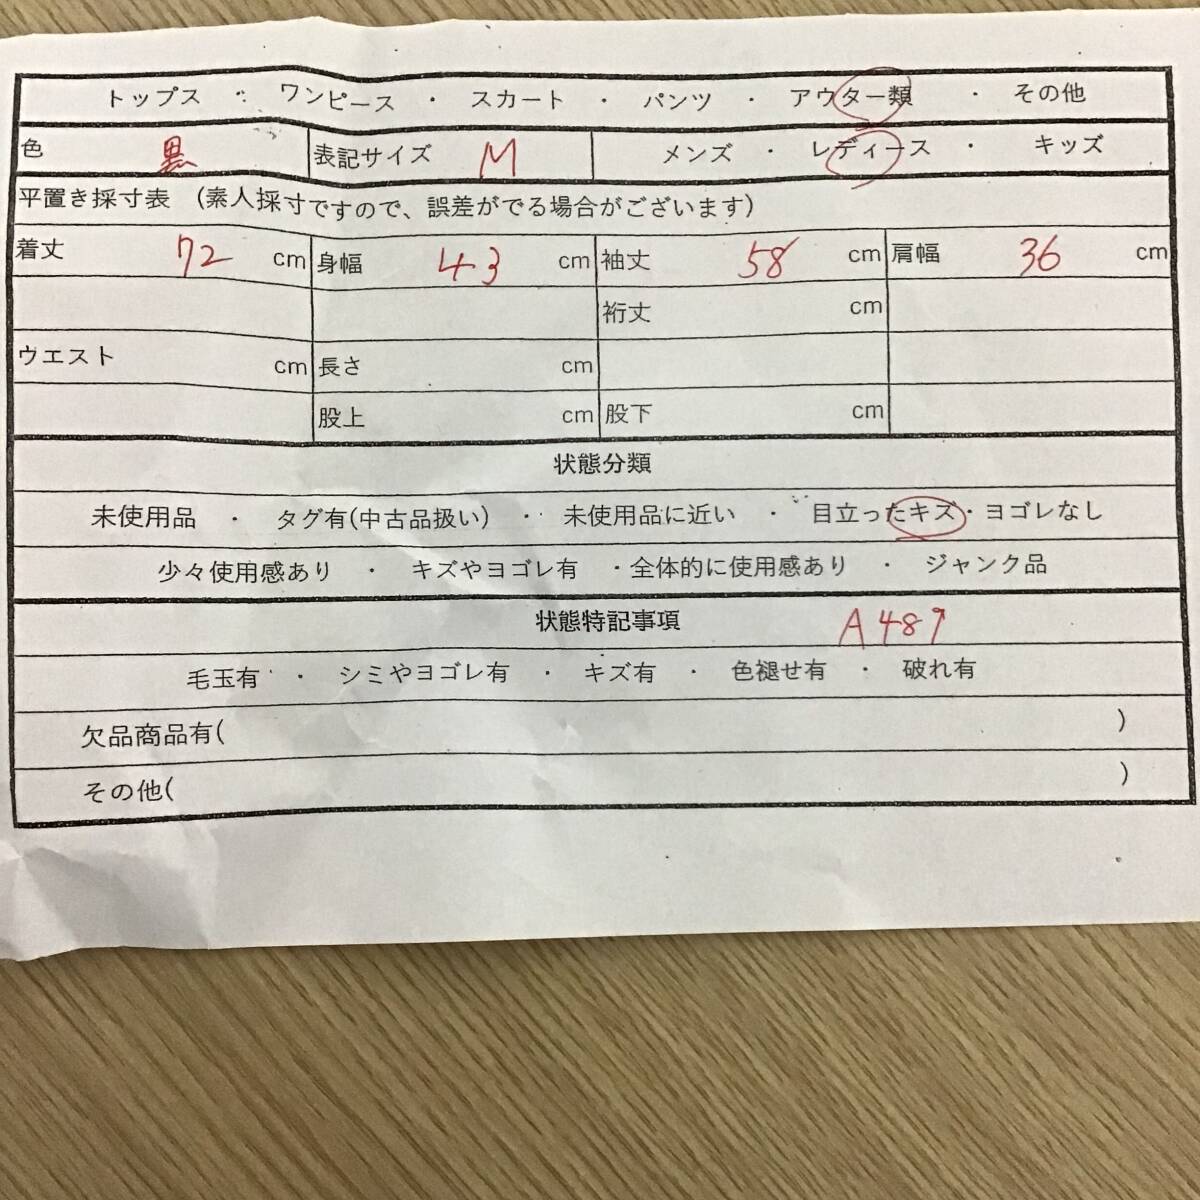 トップス ・ ワンピース ・ スカート ・ パンツ ・ アウター類 ・ その他
色 黒 表記サイズ M メンズ ・ レディース ・ キッズ
平置き採寸表 (素人採寸ですので、誤差がでる場合がございます)
着丈 72 cm 身幅 43 cm 袖丈 58 cm 肩幅 36 cm
裄丈 cm
ウエスト cm 長さ cm
股上 cm 股下 cm
状態分類
未使用品 ・ タグ有(中古品扱い) ・ 未使用品に近い ・ 目立ったキズ・ヨゴレなし
少々使用感あり ・ キズやヨゴレ有 ・全体的に使用感あり ・ ジャンク品
状態特記事項 A489
毛玉有 ・ シミやヨゴレ有 ・ キズ有 ・ 色褪せ有 ・ 破れ有
欠品商品有( )
その他( )